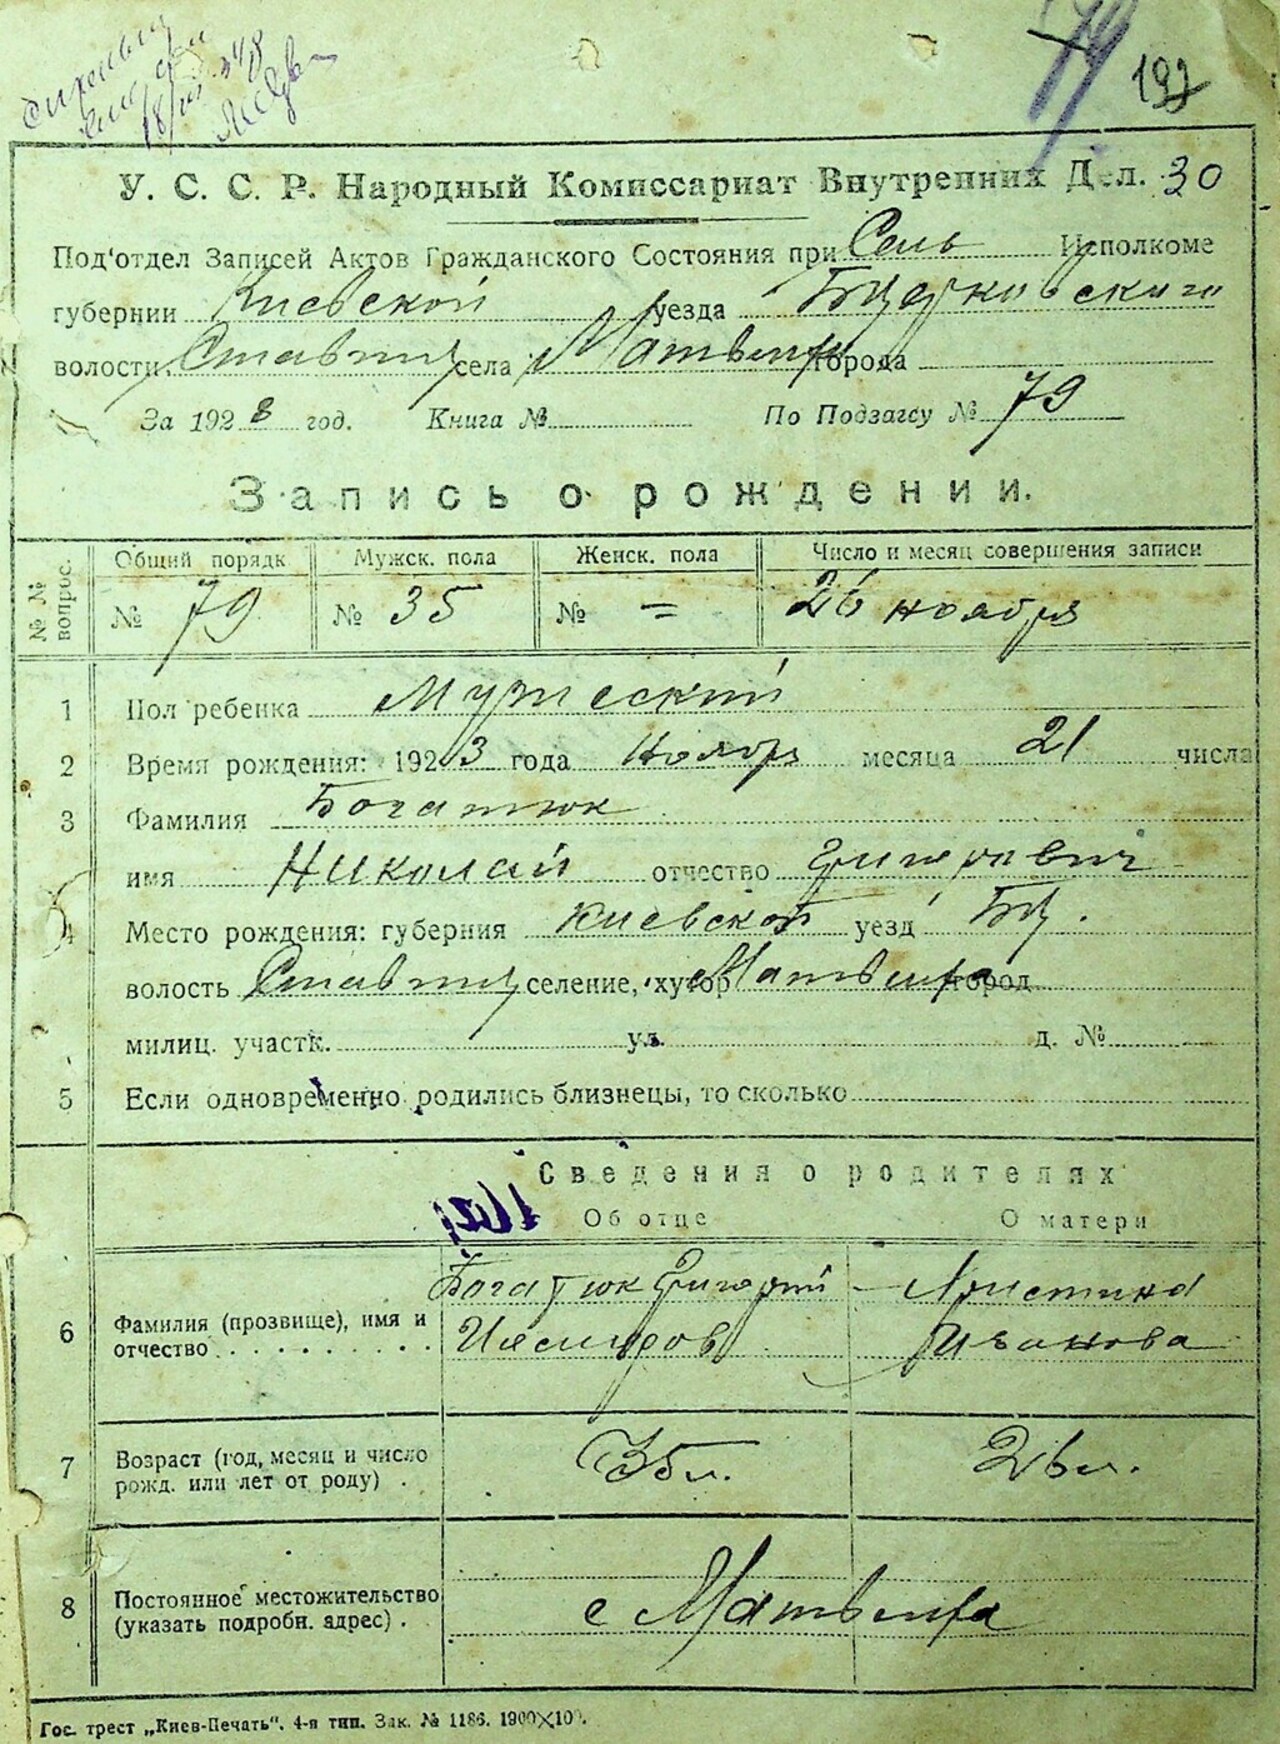 79 192
У. С. С. Р. Народный Комиссариат Внутренних Дел. 30
Под'отдел Записей Актов Гражданского Состояния при Сель Исполкоме
губернии Киевской уезда Бцерковского
волости Ставищ села города
За 1923 год. Книга № По Подзагсу № 79
Запись о рождении.
№ № вопрос. Общий порядк Мужск. пола Женск. пола Число и месяц совершения записи
№ 79 № 35 № = 26 ноября
1 Пол ребенка Мужеский
2 Время рождения: 1923 года Ноябр месяца 21 числа
3 Фамилия Богатюк
имя Николай отчество Григориевич
4 Место рождения: губерния Киевской уезд БЦ.
волость Ставищ селение, хутор город
милиц. участк. ул. д. №
5 Если одновременно родились близнецы, то сколько
Сведения о родителях
Об отце О матери
6 Фамилия (прозвище), имя и Богатюк Григорий Христина
отчество Иванова
7 Возраст (год, месяц и число 35 л. 26 л.
рожд. или лет от роду) .
8 Постоянное местожительство
(указать подробн. адрес) . с
Гос. трест „Киев-Печать“. 4-я тип. Зак. № 1186. 1900×10